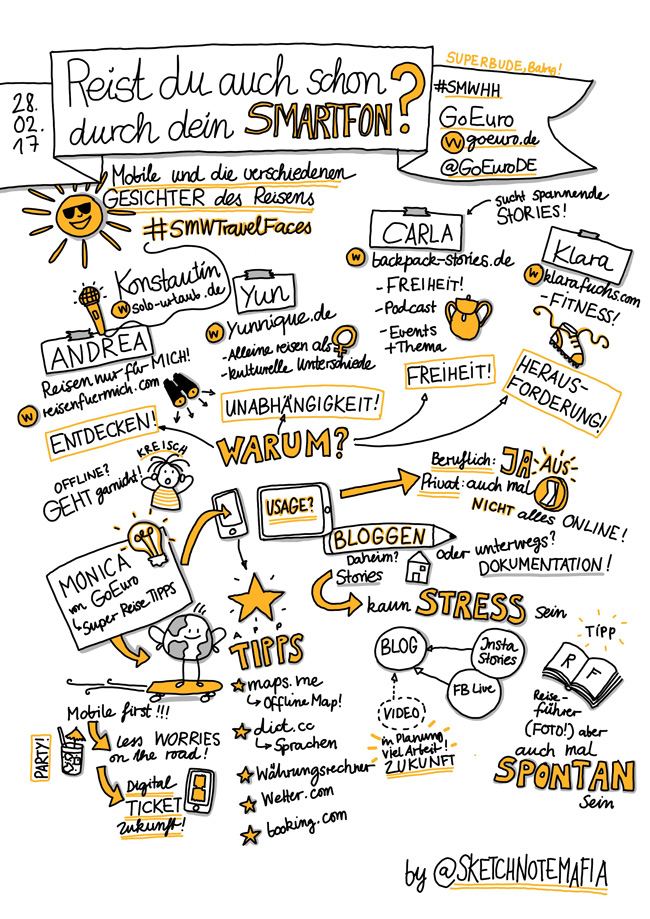 28.
02.
17
Reist du auch schon
durch dein SMARTFON?
SUPERBUDE, Baby!
#SMWHH
GoEuro
W goeuro.de
@GoEuroDE
Mobile und die verschiedenen
GESICHTER des Reisens
#SMWTravelFaces
sucht spannende
STORIES!
CARLA
W backpack-stories.de
- FREIHEIT!
- Podcast
- Events
+ Thema
Klara
W klarafuchs.com
- FITNESS!
Konstantin
W solo-urlaub.de
Yun
W Yunnique.de
- Alleine reisen als ♀
- kulturelle Unterschiede
ANDREA
Reisen nur für MICH!
W reisenfuermich.com
ENTDECKEN!
UNABHÄNGIGKEIT!
FREIHEIT!
HERAUS-
FORDERUNG!
WARUM?
KREISCH
OFFLINE?
GEHT garnicht!
USAGE?
Beruflich: JA
AUS
Privat: auch mal
NICHT alles ONLINE!
BLOGGEN
Daheim?
Stories
oder unterwegs?
DOKUMENTATION!
kann STRESS sein
MONICA
von GoEuro
↳ Super Reise TIPPS
APP
TIPPS
maps.me
↳ Offline Map!
dict.cc
↳ Sprachen
Währungsrechner
Wetter.com
booking.com
Mobile first!!!
PARTY!
Less WORRIES
on the road!
Digital
TICKET
Zukunft!
BLOG
Insta
Stories
FB Live
VIDEO
in Planung
viel Arbeit!
ZUKUNFT
TIPP
R F
Reise-
führer
(FOTO!) aber
auch mal
SPONTAN
sein
by @SKETCHNOTEMAFIA